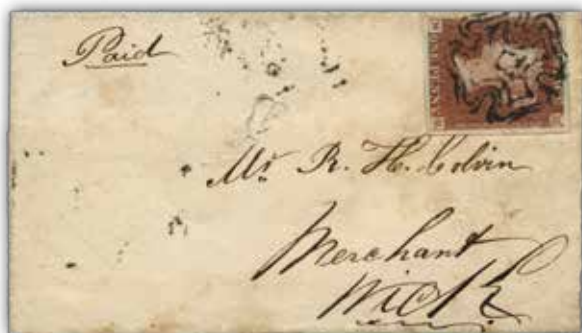 Paid
Mr. R. H. Colvin
Merchant
Wick